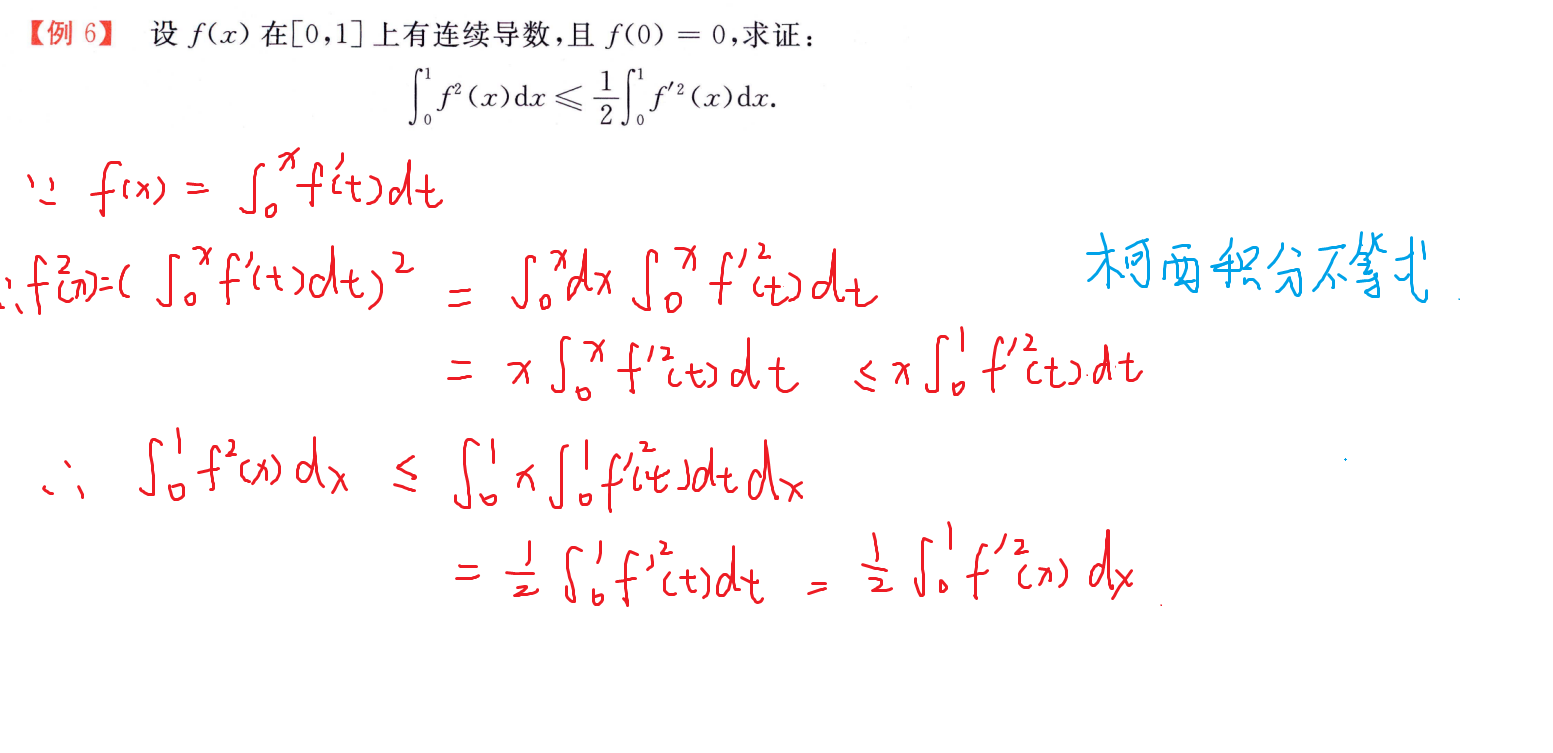 【例 6】 设 f(x) 在[0,1]上有连续导数,且 f(0) = 0,求证:
∫₀¹ f²(x)dx ⩽ 1/2 ∫₀¹ f′²(x)dx.
∵ f(x) = ∫₀ˣ f′(t)dt
∴ f²(x)=( ∫₀ˣ f′(t)dt)² = ∫₀ˣ dx ∫₀ˣ f′²(t)dt 柯西积分不等式
= x ∫₀ˣ f′²(t)dt ≤ x ∫₀¹ f′²(t)dt
∴ ∫₀¹ f²(x)dx ≤ ∫₀¹ x ∫₀¹ f′²(t)dt dx
= 1/2 ∫₀¹ f′²(t)dt = 1/2 ∫₀¹ f′²(x) dx